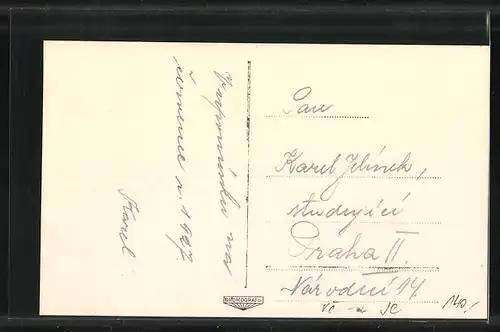 Vzpomínka na
červenec r. 1927
Karel
Pan
Karel Jelínek,
studující
Praha II.
Národní 14.
BROMOGRAFIA
140,-